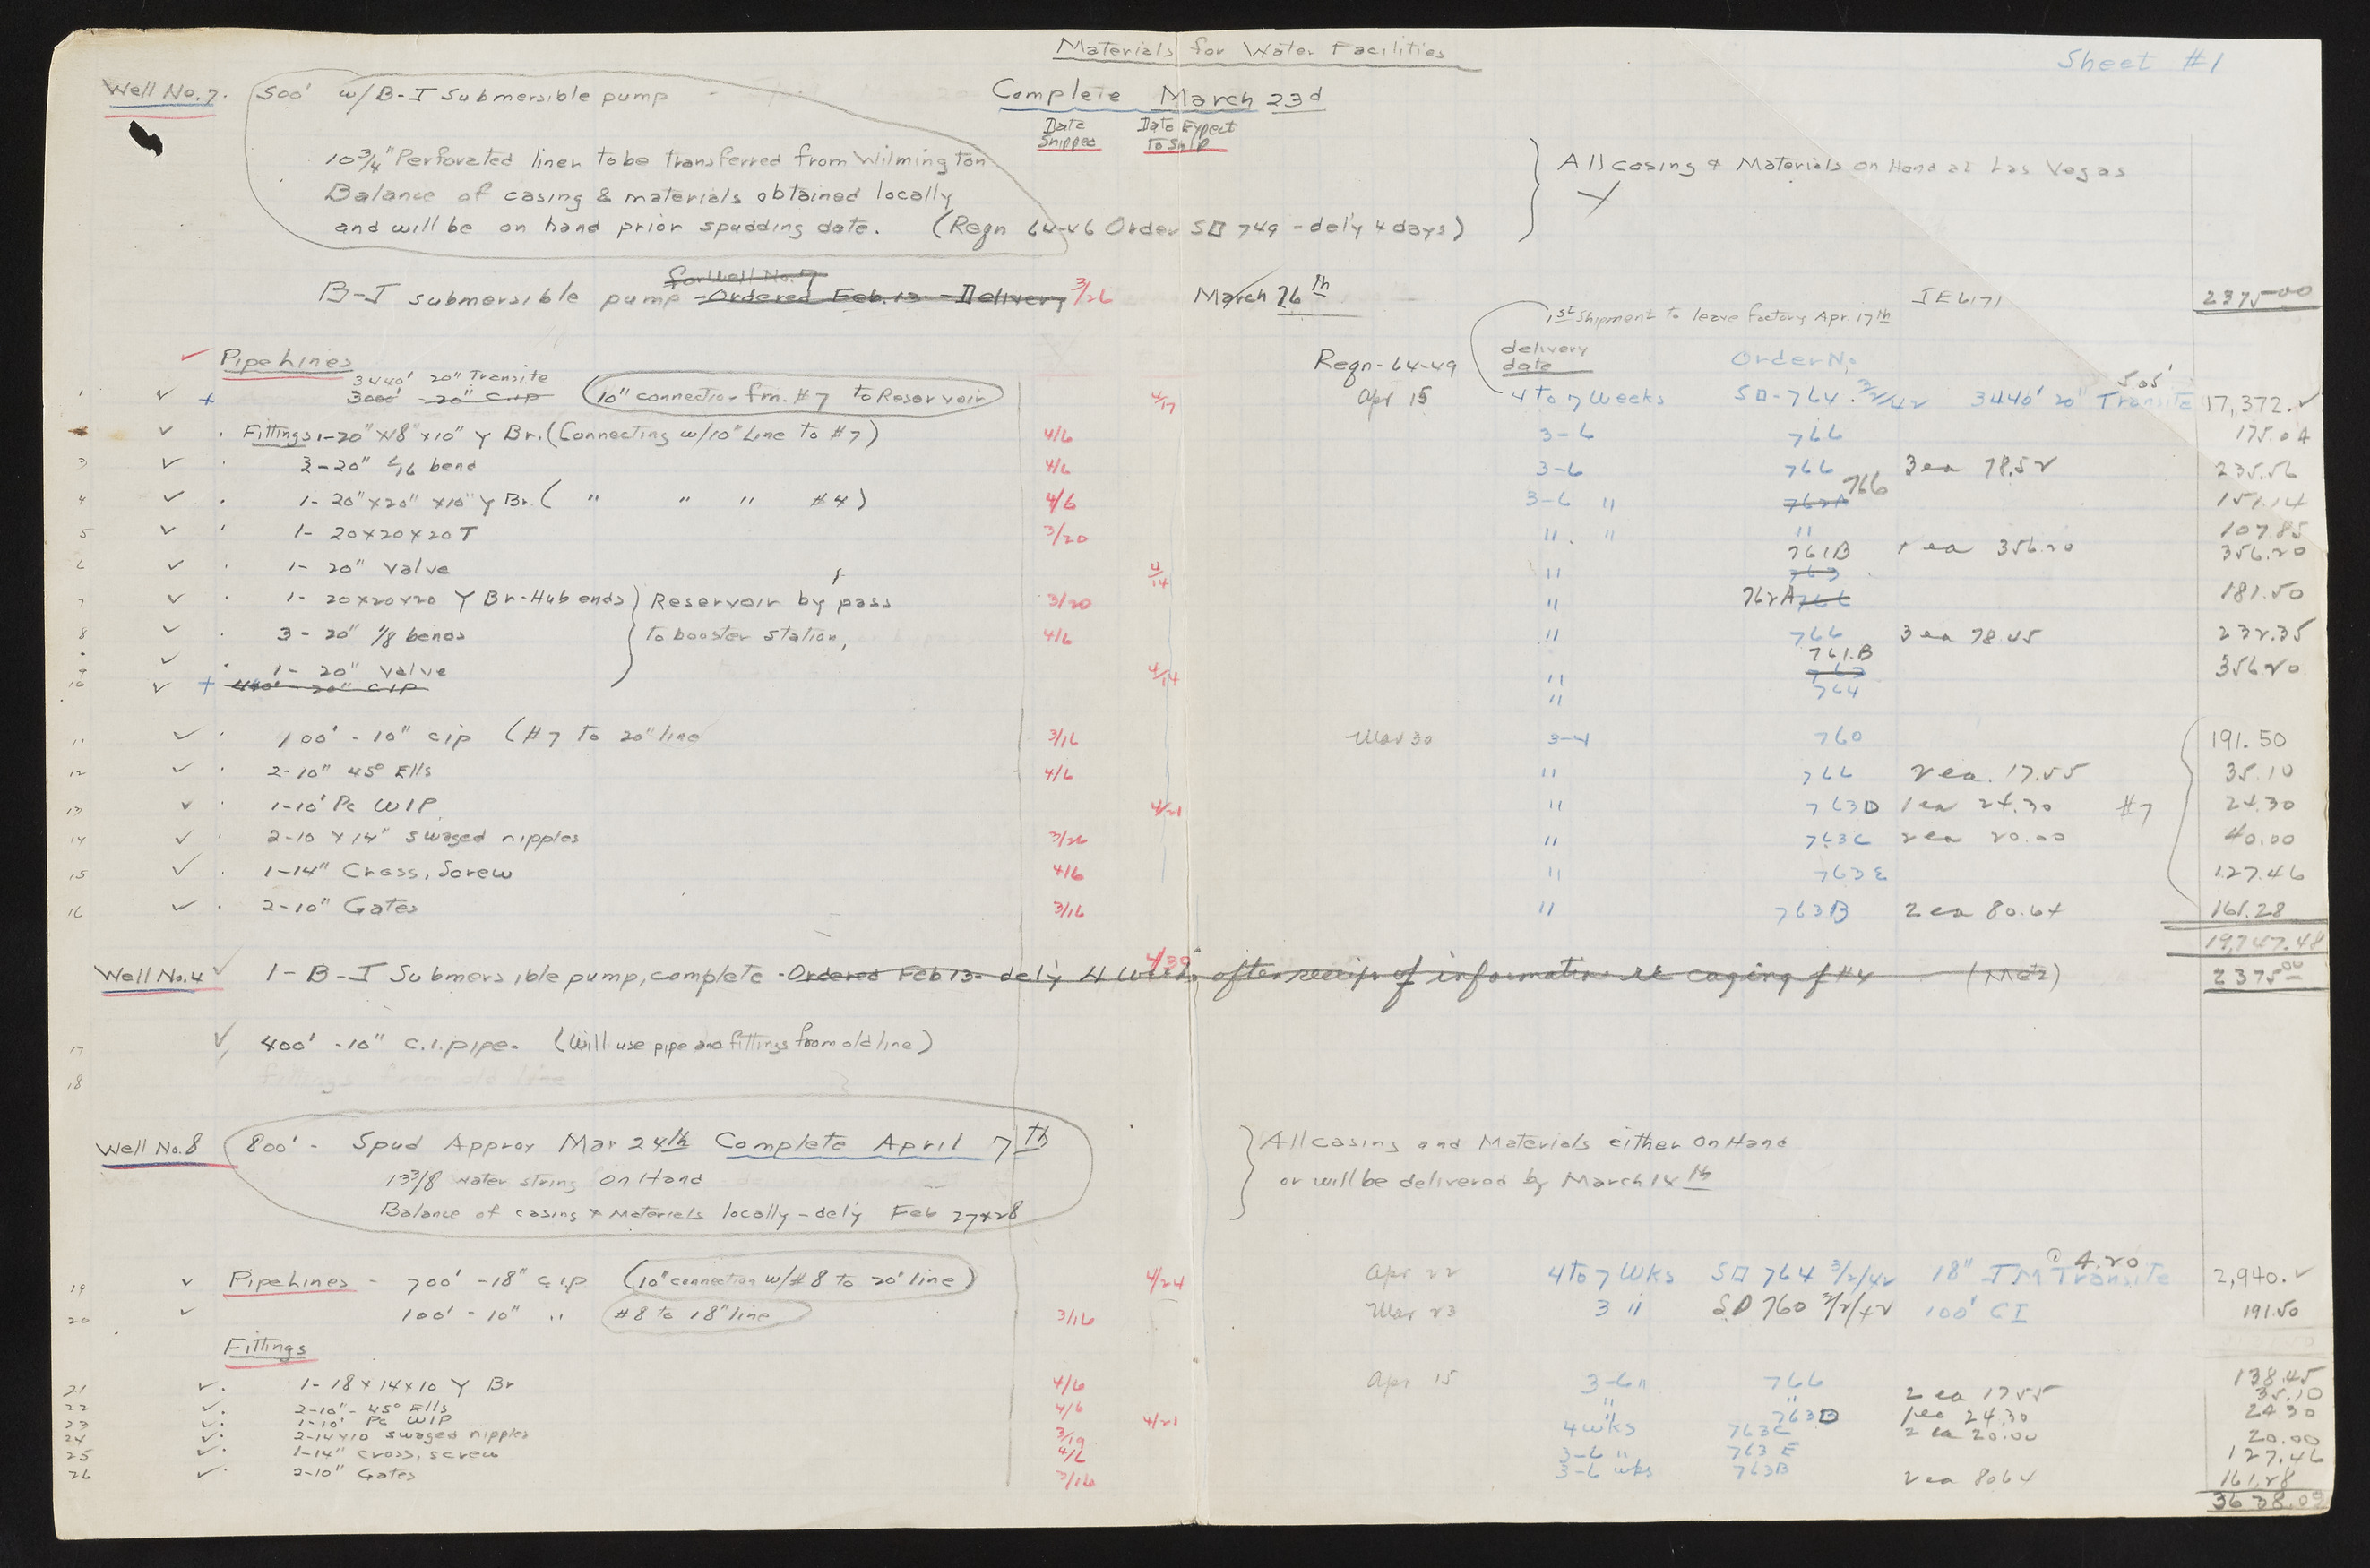 Materials for Water Facilities
Sheet #1
Well No. 7. 500' w/B-J Submersible pump Complete March 23d
Date Shipped Date Expect To Ship
10 3/4" Perforated liner to be transferred from Wilmington
All casing & Materials on Hand at Las Vegas
Balance of casing & materials obtained locally
and will be on hand prior spudding date. (Reqn 64-46 Order SO 749 - del'y 4 days)
for Well No. 7
B-J submersible pump - Ordered Feb. 13 - Delivery 3/26 March 26th JE6171 2375.00
1st Shipment to leave factory Apr. 17th
Pipe Lines Reqn-64-49 delivery date Order No.
3440' 20" Transite 505'
1 3000' - 20" CIP (10" connection fm. #7 to Reservoir) 4/17 Apr 15 4 to 7 Weeks SO-764 3/2/42 3440' 20" Transite 17,372.
Fittings 1-20"x18"x10" Y Br. (Connecting w/10" Line to #7) 4/6 3-6 766 175.04
3 3-20" 1/16 bend 4/6 3-6 766 3 ea 78.52 235.56
4 1-20"x20"x10" Y Br. ( " " " #4) 4/6 3-6 " 762A 766 151.14
5 1- 20x20x20 T 3/20 " " " 107.85
6 1- 20" Valve 4/14 " 763 761B 1 ea 356.20 356.20
7 1- 20x20x20 Y Br-Hub ends) Reservoir by pass 3/20 " 762A 766 181.50
8 3 - 20" 1/8 bends to booster station, 4/6 " 766 3 ea 78.45 232.35
9 1- 20" Valve 4/14 " 763 761.B 356.20
10 440' - 20" CIP " 764
11 100' - 10" cip (#7 to 20" line 3/16 Mar 30 3-4 760 191.50
12 2-10" 45° Ells 4/6 " 766 2 ea. 17.55 35.10
13 1-10' Pc WIP 4/21 " 763D 1 ea 24.30 #7 24.30
14 2-10 x 14" swaged nipples 3/26 " 763C 2 ea 20.00 40.00
15 1-14" Cross, Screw 4/6 " 763E 127.46
16 2-10" Gates 3/16 " 763B 2 ea 80.64 161.28
19,747.48
Well No. 4 1- B-J Submersible pump, complete - Ordered Feb 13 - del'y 4 weeks after receipt of information re casing of #4 4/30 2375.00
17 400' - 10" C.I. pipe. (Will use pipe and fittings from old line)
18 fittings from old line
Well No. 8 800' - Spud Approx Mar 24th Complete April 7th All casing and Materials either On Hand
13 3/8 water string On Hand or will be delivered by March 14th
Balance of casing & Materials locally - del'y Feb 27 & 28
@ 4.20
19 Pipe Lines - 700' - 18" C.I.P (10" connection w/#8 to 20" line) 4/24 Apr 22 4 to 7 Wks SO 764 3/2/42 18" JM Transite 2,940.
20 100' - 10" " #8 to 18" line 3/16 Mar 23 3 " SO 760 3/2/42 100' CI 191.50
Fittings
21 1- 18x14x10 Y Br 4/6 Apr 15 3-6 " 766 138.45
22 2-10" - 45° Ells 4/6 " " 2 ea 17.55 35.10
23 1-10' Pc WIP 4/21 " 763D 1 ea 24.30 24.30
24 2-14x10 swaged nipples 3/19 4 wks 763C 2 ea 20.00 20.00
25 1-14" cross, screw 4/6 3-6 " 763 E 127.46
26 2-10" Gates 3/16 3-6 wks 763B 2 ea 80.64 161.28
3678.09